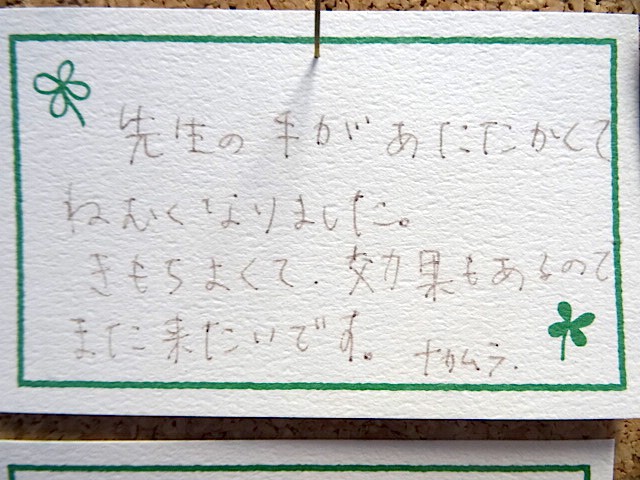 先生の手があたたかくて
ねむくなりました。
きもちよくて、効果もあるので
また来たいです。 ナカムラ.